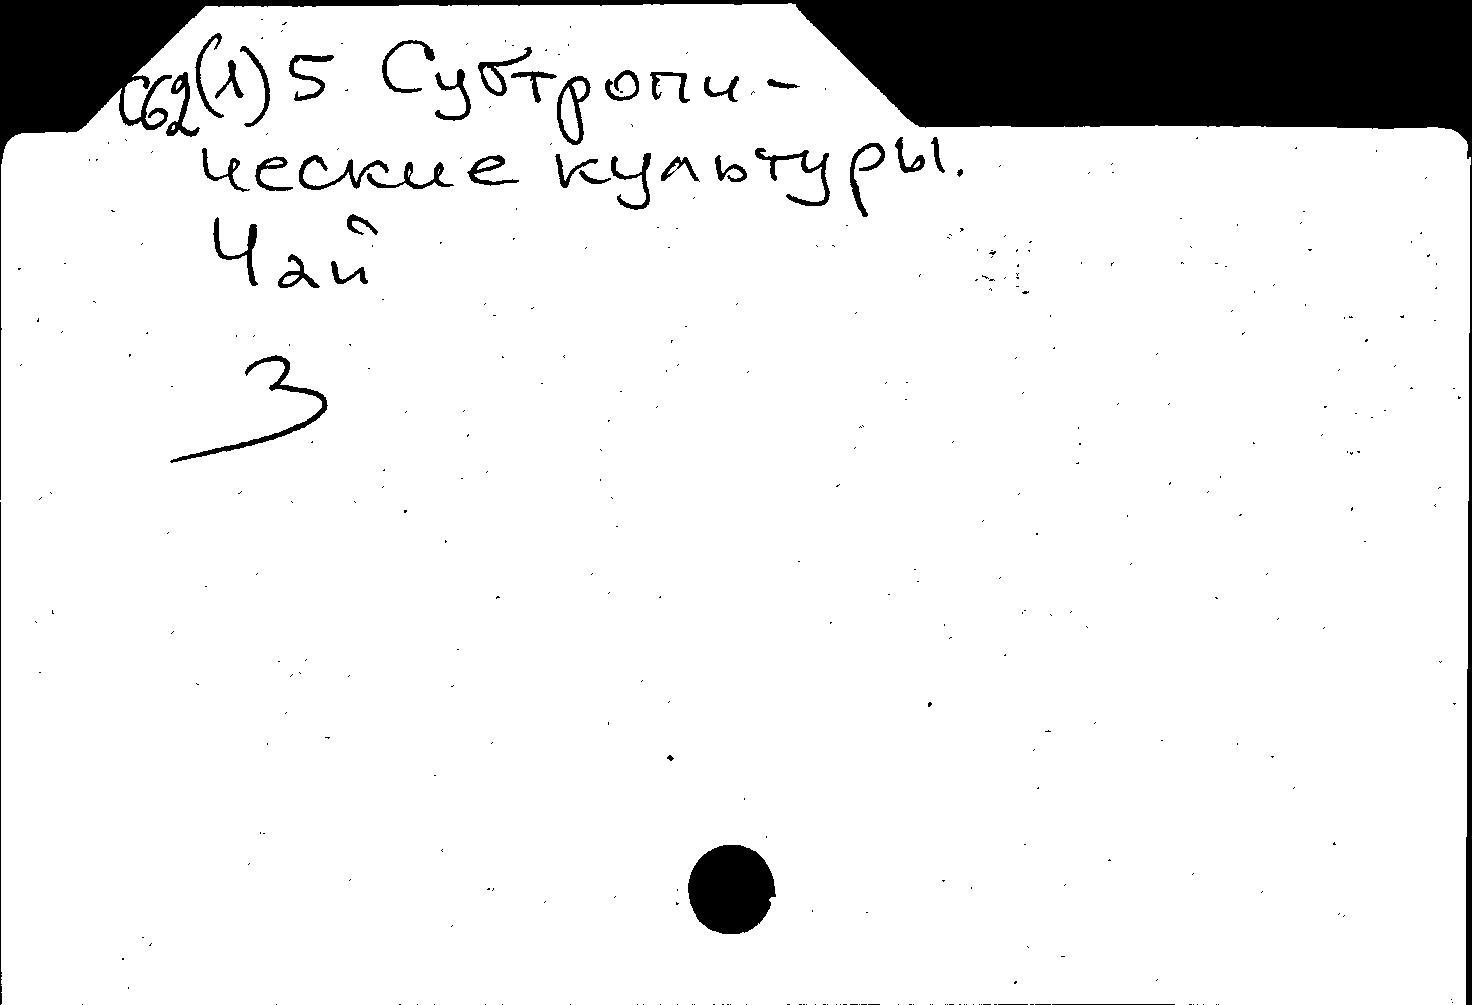 С62(1)5 Субтропи-
ческие культуры.
Чай
З